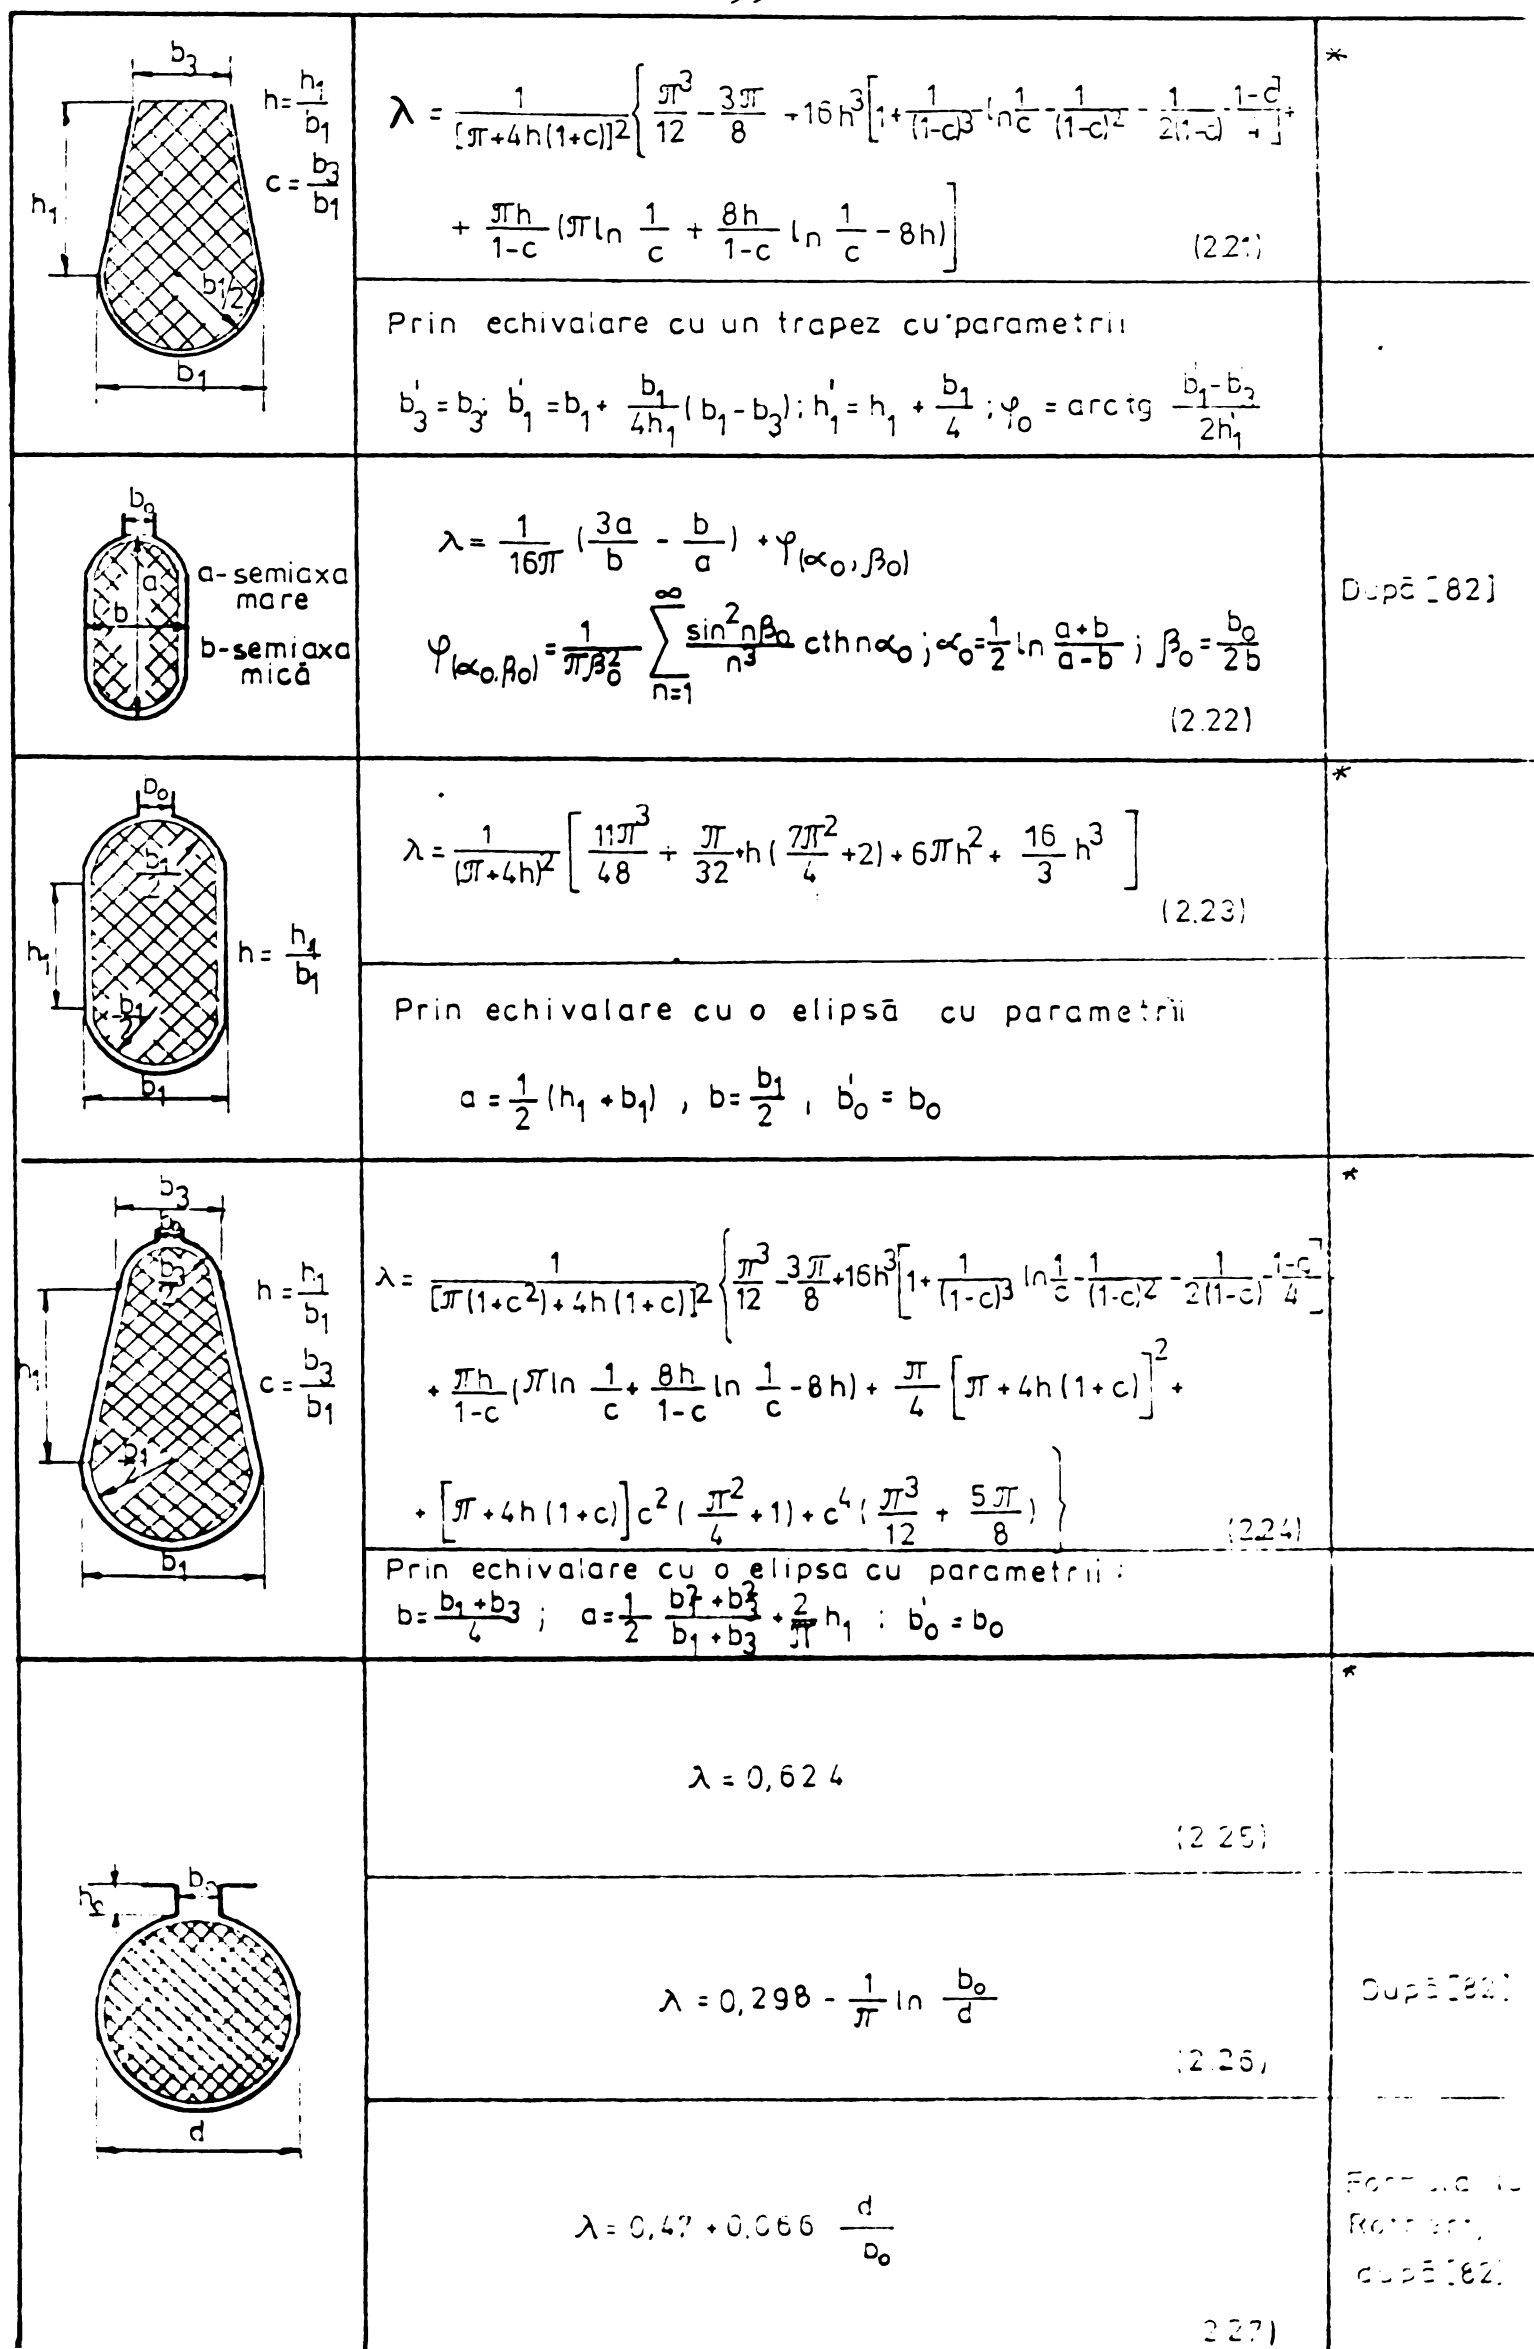 b₃
h = h₁/b₁
c = b₃/b₁
h₁
b₁/2
b₁
*
λ = 1/[π+4h(1+c)]² { π³/12 - 3π/8 + 16h³[1 + 1/(1-c)³ ln 1/c - 1/(1-c)² - 1/2(1-c) - (1-c)/4] +
+ πh/(1-c) (π ln 1/c + 8h/(1-c) ln 1/c - 8h) ]
(2.21)
Prin echivalare cu un trapez cu parametrii
b₃' = b₃; b₁' = b₁ + b₁/4h₁ (b₁-b₃); h₁' = h₁ + b₁/4; φ₀ = arctg (b₁'-b₃')/2h₁'
b₀
a
b
a-semiaxa
mare
b-semiaxa
mică
λ = 1/16π (3a/b - b/a) + φ(α₀,β₀)
φ(α₀,β₀) = 1/πβ₀² ∑ₙ₌₁^∞ sin²nβ₀/n³ cthnα₀; α₀ = 1/2 ln (a+b)/(a-b); β₀ = b₀/2b
(2.22)
După [82]
b₀
b₁/2
h₁
h = h₁/b₁
b₁/2
b₁
*
λ = 1/(π+4h)² [ 11π³/48 + π/32 + h(7π²/4 + 2) + 6πh² + 16/3 h³ ]
(2.23)
Prin echivalare cu o elipsă cu parametrii
a = 1/2 (h₁+b₁), b = b₁/2, b₀' = b₀
b₃
b₀
b₃/2
h = h₁/b₁
h₁
c = b₃/b₁
b₁/2
b₁
*
λ = 1/[π(1+c²)+4h(1+c)]² { π³/12 - 3π/8 + 16h³[1 + 1/(1-c)³ ln 1/c - 1/(1-c)² - 1/2(1-c) - (1-c)/4]
+ πh/(1-c) (π ln 1/c + 8h/(1-c) ln 1/c - 8h) + π/4 [π+4h(1+c)]² +
+ [π+4h(1+c)]c² (π²/4 + 1) + c⁴ (π³/12 + 5π/8) }
(2.24)
Prin echivalare cu o elipsa cu parametrii:
b = (b₁+b₃)/4; a = 1/2 (b₁²+b₃²)/(b₁+b₃) + 2/π h₁; b₀' = b₀
*
λ = 0,624
(2.25)
b₀
d
λ = 0,298 - 1/π ln b₀/d
(2.26)
După [82]
λ = 0,47 + 0,066 d/b₀
(2.27)
după [82]